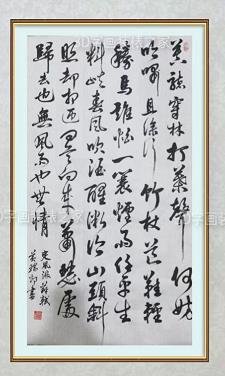 莫聽穿林打葉聲 何妨
吟嘯且徐行 竹杖芒鞋輕
勝馬誰怕一蓑煙雨任平生
料峭春風吹酒醒微冷山頭斜
照卻相迎回首向來蕭瑟處
歸去也無風雨也無情
定風波 蘇軾
書